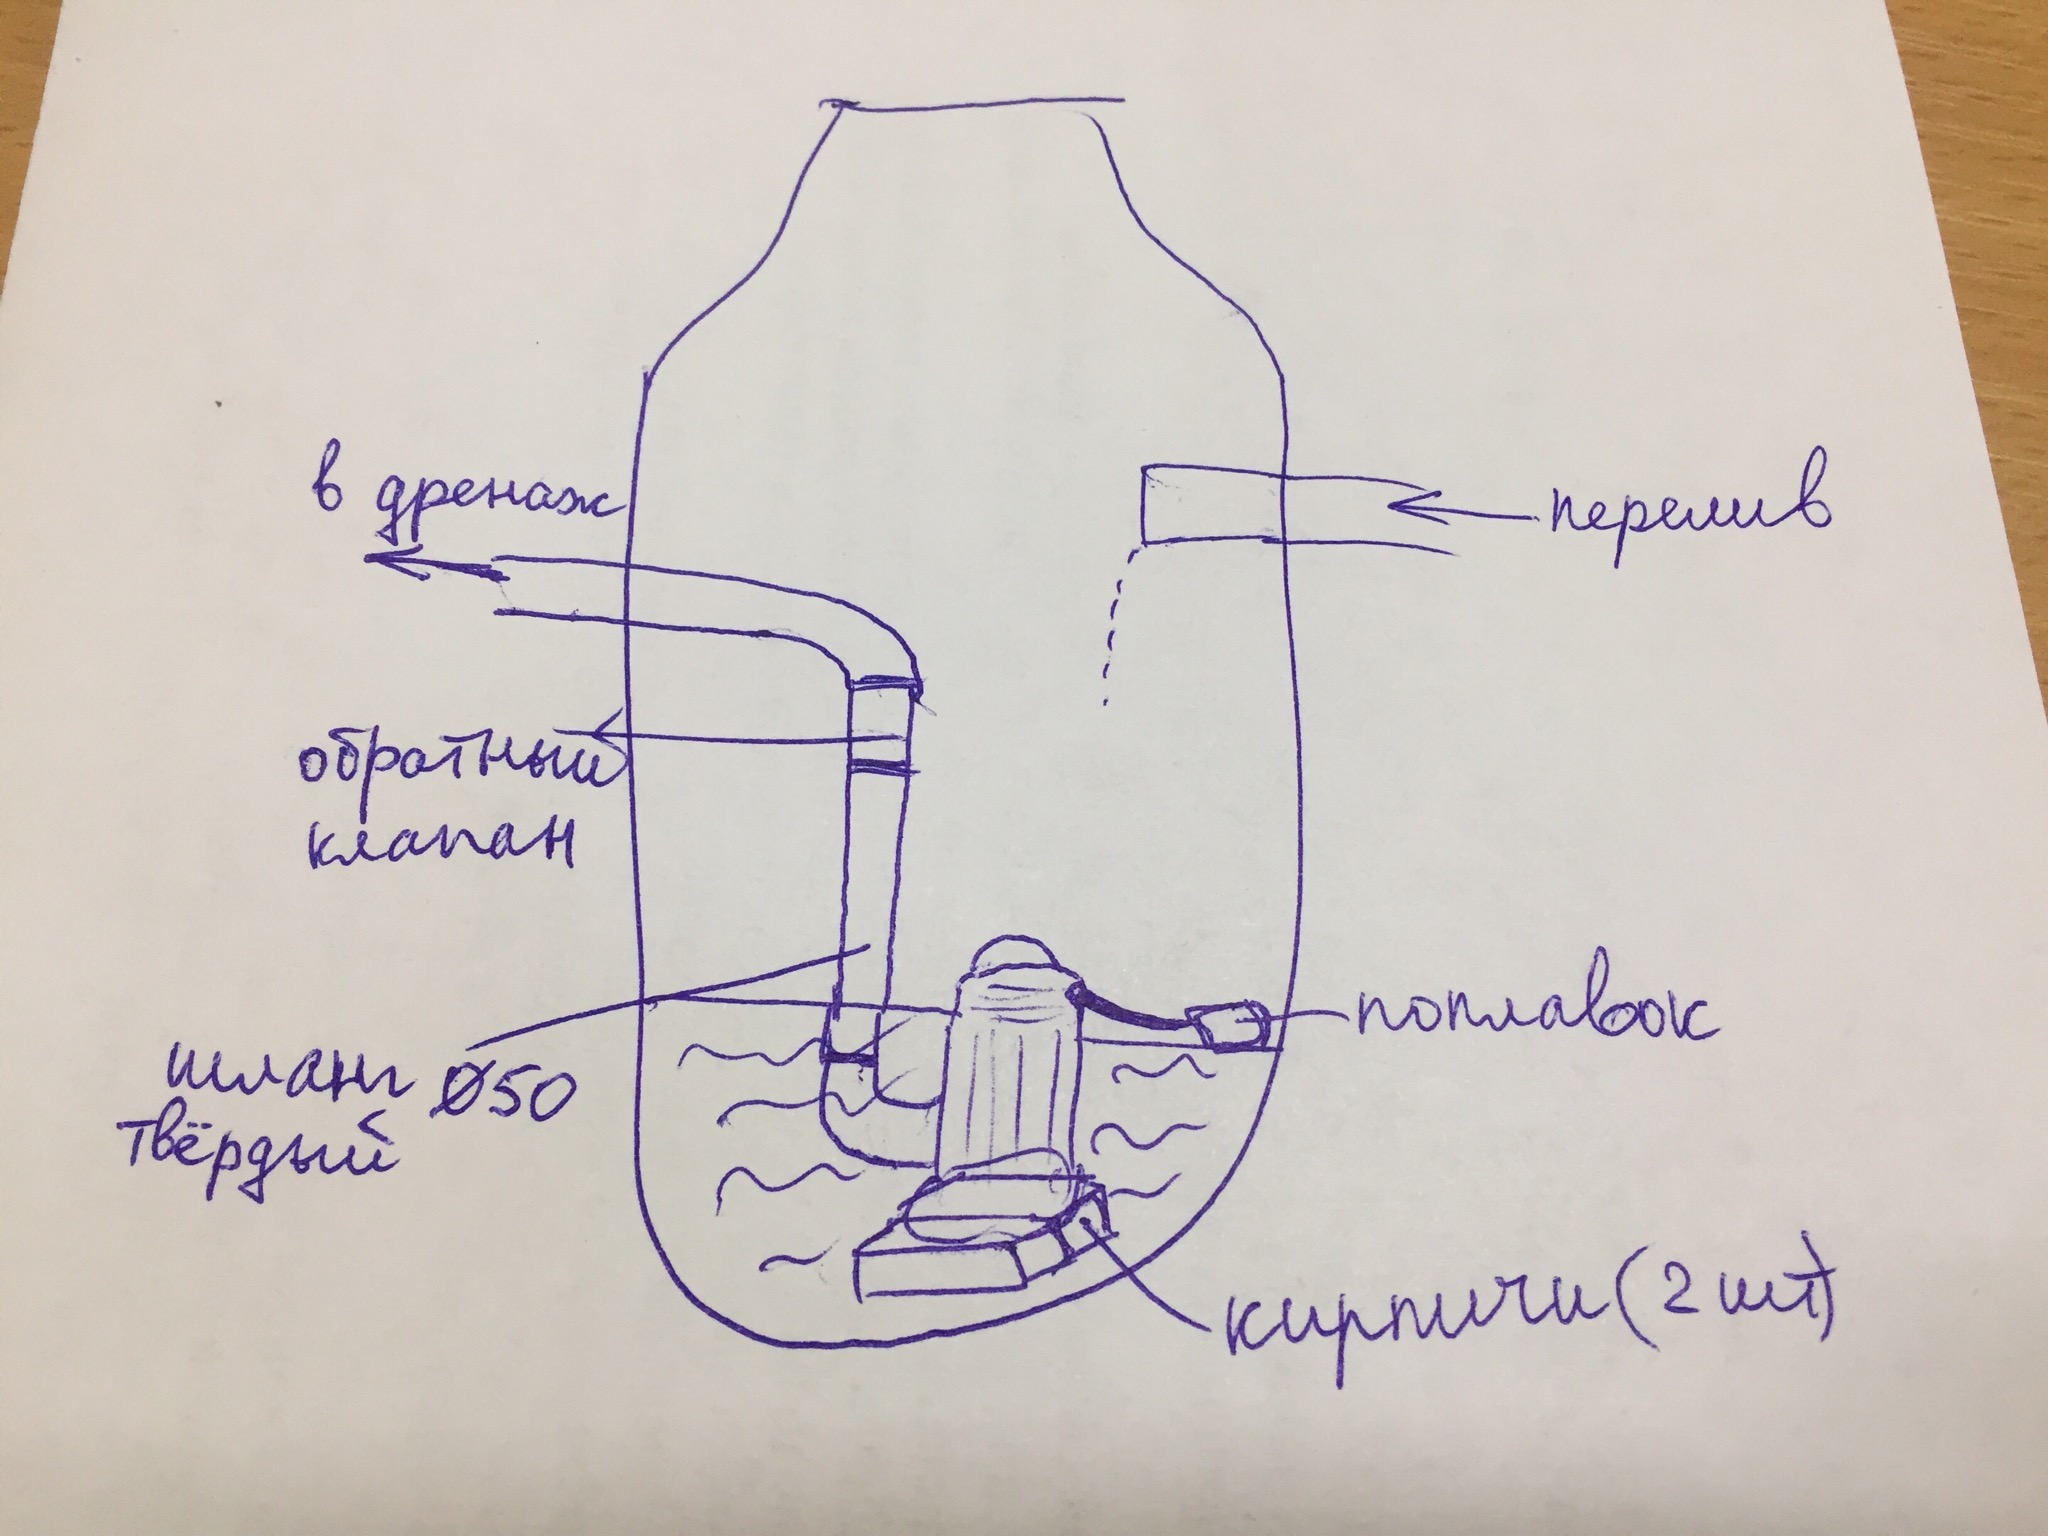 в дренаж
перелив
обратный
клапан
поплавок
шланг Ø50
твёрдый
кирпичи (2 шт)